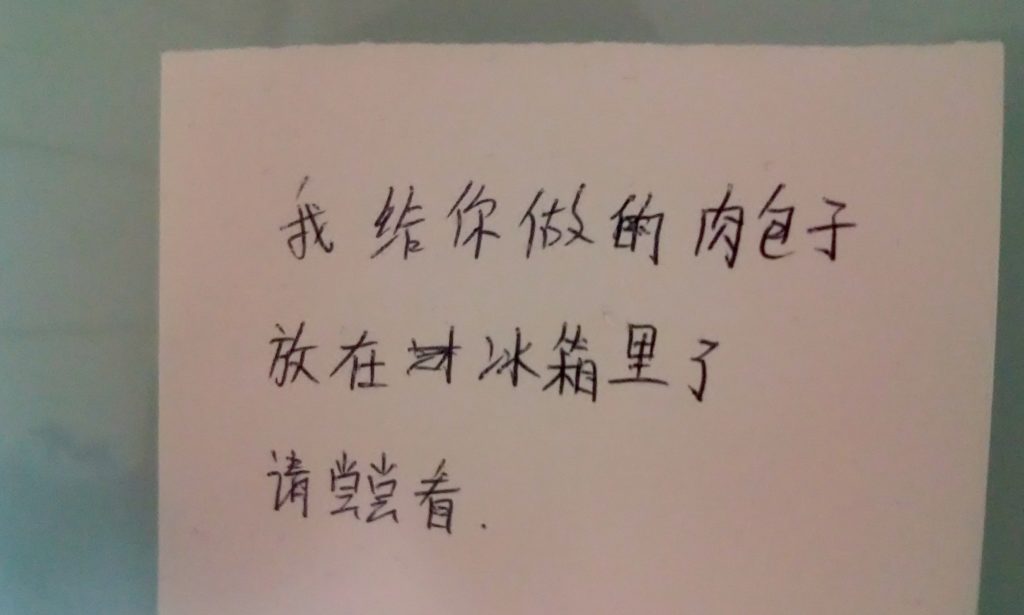 我给你做的肉包子
放在冰箱里了
请尝尝看.